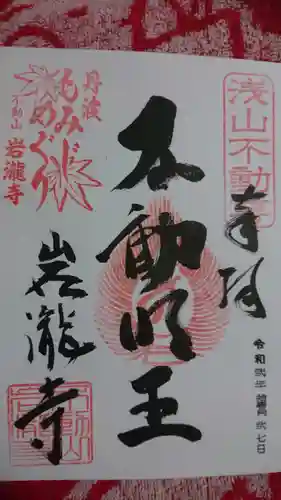 浅山不動
奉拝
令和
七日
不動明王
丹波
もみじ
めぐり
不動山
岩瀧寺
岩瀧寺